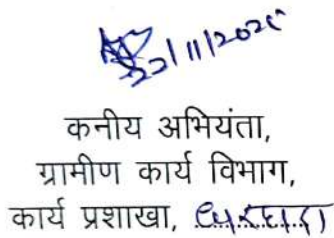 22/11/2025
कनीय अभियंता,
ग्रामीण कार्य विभाग,
कार्य प्रशाखा,